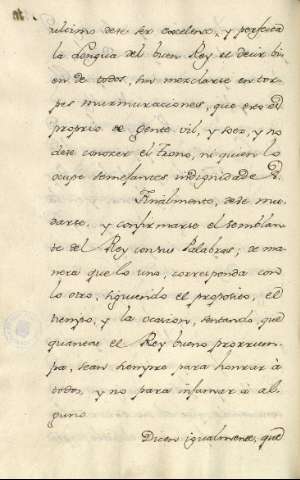 ultimo debe ser excelente, y perfecta
la Lengua del buen Rey el decir bi-
en de todos, sin mezclarse en tor-
pes murmuraciones, que eso es
proprio de Gente vil, y soez, y no
debe conocer el Trono, ni quien lo
ocupe semejantes indignidades.
Finalmente, debe mu-
darse, y confirmarse el semblan-
te del Rey con sus Palabras, de ma-
nera que lo uno, corresponda con
lo otro, siguiendo el proposito, el
tiempo, y la ocasion, sentando, que
quantas el Rey bueno prorrum-
pa, sean siempre para honrar à
todos, y no para infamar à al-
guno.
Dicen igualmente, que